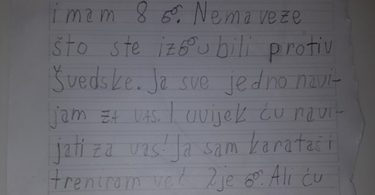 imam 8 g. Nema veze
što ste izgubili protiv
Švedske. Ja sve jedno navi-
jam za vas. I uvijek ću navi-
jati za vas! Ja sam karataš i
treniram već 2je g. Ali ću